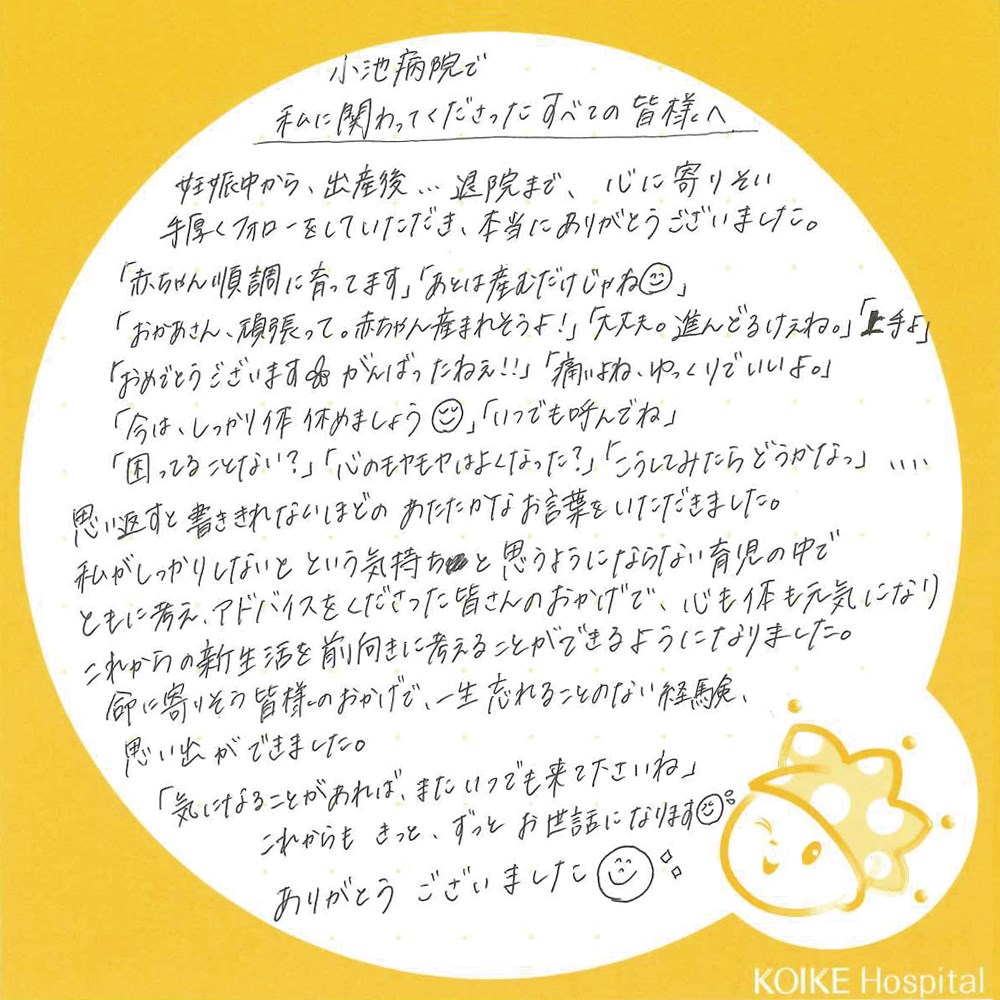 小池病院で
私に関わってくださったすべての皆様へ
妊娠中から、出産後…退院まで、心に寄りそい
手厚くフォローをしていただき、本当にありがとうございました。
「赤ちゃん順調に育ってます」「あとは産むだけじゃね😊」
「おかあさん、頑張って。赤ちゃん産まれそうよ!」「大丈夫。進んどるけえね。」「上手よ」
「おめでとうございます がんばったねぇ!!」「痛いよね、ゆっくりでいいよ。」
「今は、しっかり体休めましょう😊」「いつでも呼んでね」
「困ってることない?」「心のモヤモヤはよくなった?」「こうしてみたらどうかなっ」....
思い返すと書ききれないほどのあたたかなお言葉をいただきました。
私がしっかりしないとという気持ちと思うようにならない育児の中で
ともに考え、アドバイスをくださった皆さんのおかげで、心も体も元気になり
これからの新生活を前向きに考えることができるようになりました。
命に寄りそう皆様のおかげで、一生忘れることのない経験、
思い出ができました。
「気になることがあれば、またいつでも来て下さいね」
これからもきっと、ずっとお世話になります😊
ありがとうございました😊
KOIKE Hospital